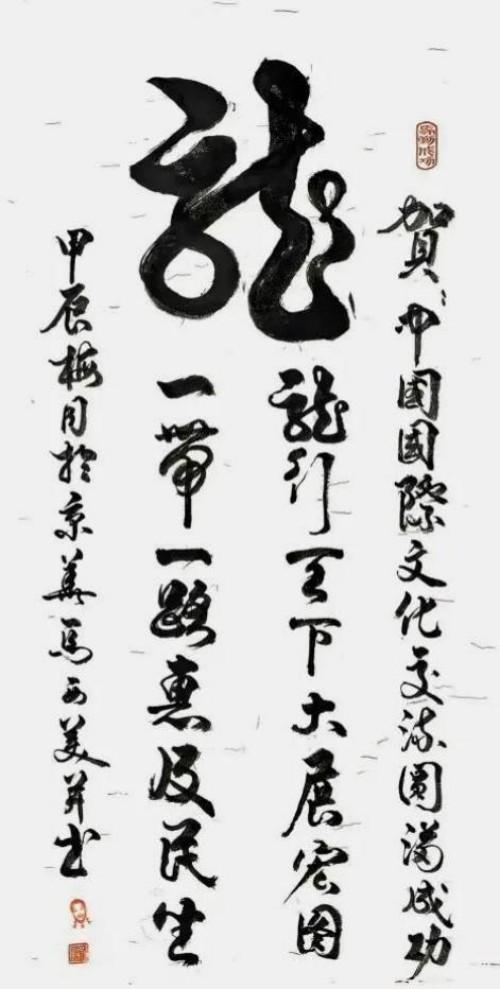 賀：中國國際文化交流圓滿成功
龍
龍行天下大展宏图
一帶一路惠及民生
甲辰梅月於京華馬美并书